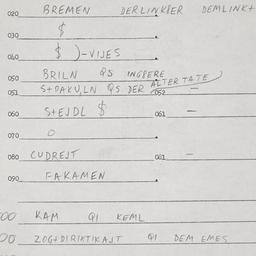 020 BREMEN DERLINKER DEMLINK+
030 $
040 $ )-VIJES
050 BRILN QS INGBERE
051 S+PAKULN QS DER ALTER TATE 052 —
060 S+EJDL $ 061 —
070 O
080 CUDREJT 081 —
090 FAKAMEN
00 KAM QI KEML
00 ZOG+DIRIKTIKAJT QI DEM EMES